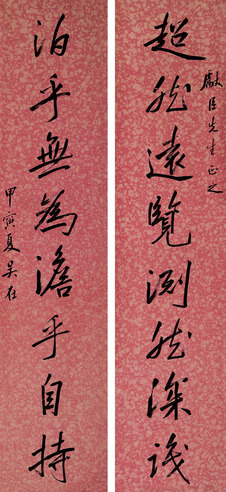 獻臣先生正之
超然遠覽淵然深識
泊乎無為澹乎自持
甲寅夏吳在